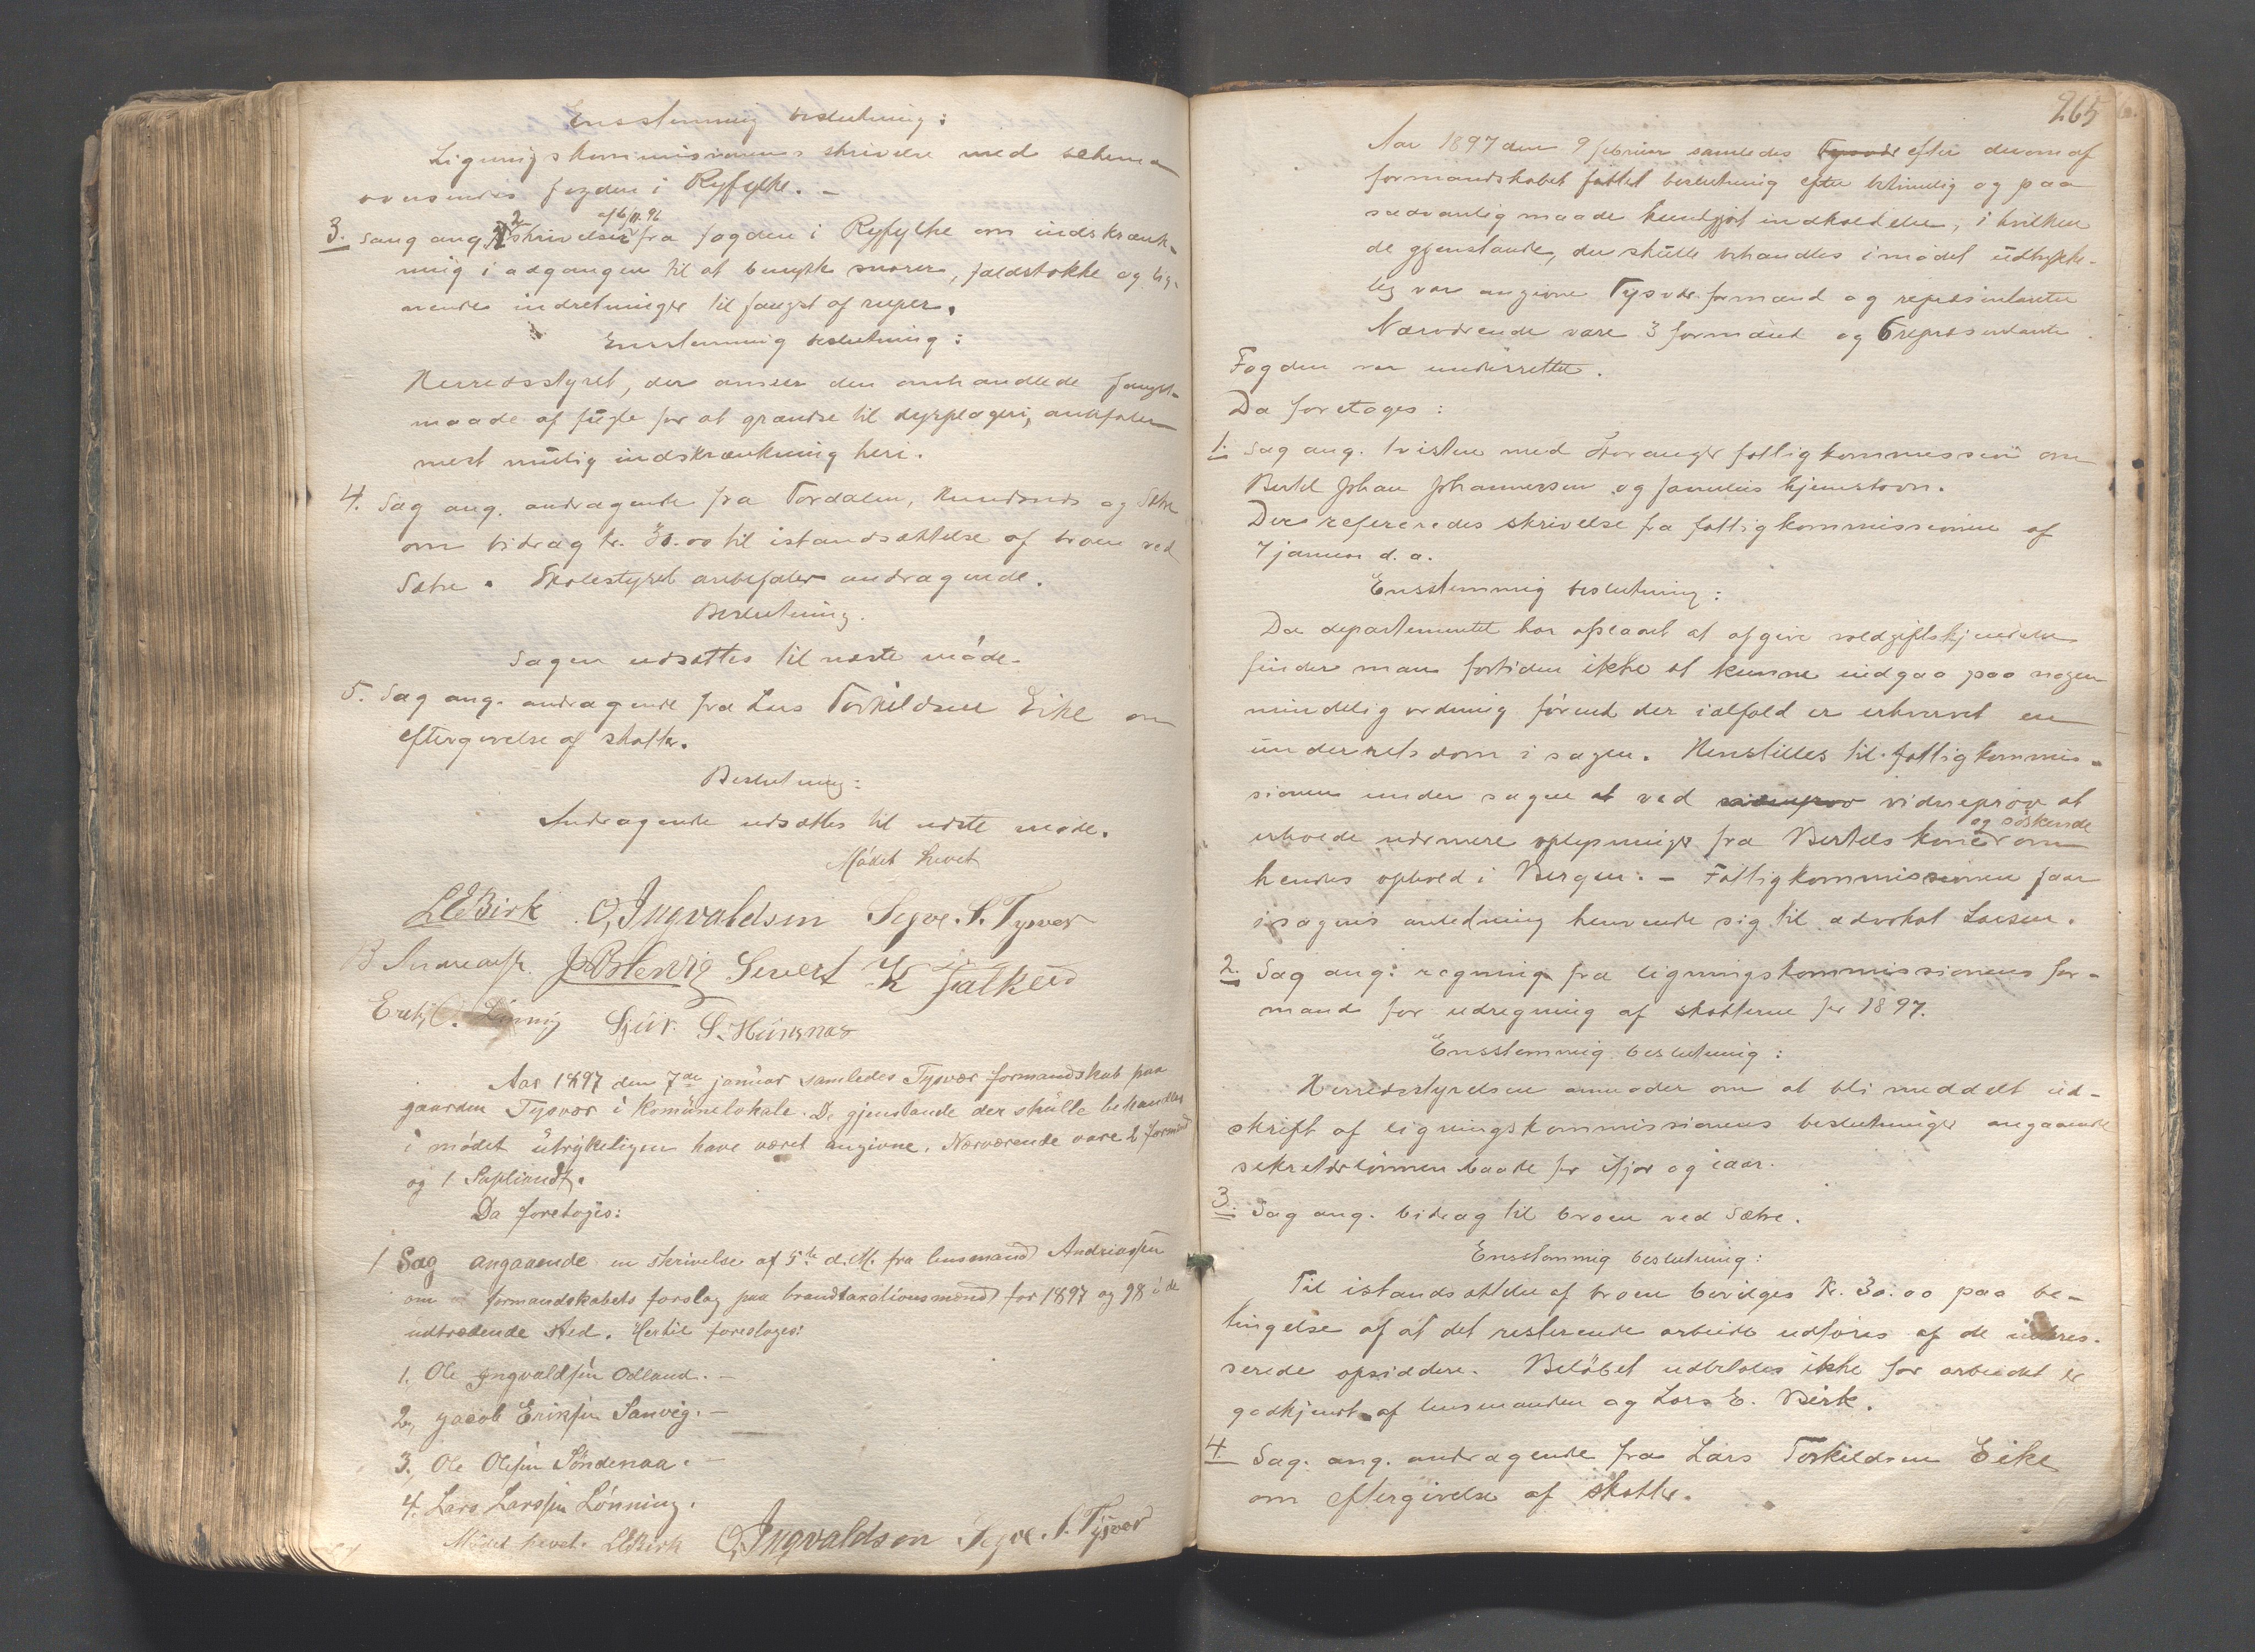 Ensstemmig beslutning:
Ligningskommissionens skrivelse med schema
oversendes fogden i Ryfylke. -
3. Sag ang. 2 skrivelser af 6/11.96 fra fogden i Ryfylke om indskrænk-
ning i adgangen til at benytte snarer, fældstokke og lig-
nende indretninger til fangst af ryper.
Ensstemmig beslutning:
Herredsstyret, der anser den omhandlede fangst-
maade af fugle for at grændse til dyrplageri, anbefaler
mest mulig indskrænkning heri.
4. Sag ang. andragende fra Tordalen, Hundsnes og Sætre
om bidrag kr. 30.00 til istandsættelse af broen ved
Sætre. Skolestyret anbefaler andragende.
Beslutning.
Sagen udsættes til næste møde.
5. Sag ang. andragende fra Lars Torkildsen Eike om
eftergivelse af skatter.
Beslutning:
Andragende udsættes til næste møde.
Mødet hævet
LEBirk O, Ingvaldsen Segve. S. Tysvær
B Andreasen. Sievert K Falkeid
Erik C. Lønnig Sjur S. Hunsnæs
Aar 1897 den 7de januar samledes Tysvær formandskab paa
gaarden Tysvær i Komünelokale. De gjenstande der skulle behandles
i mødet ütrykeligen have været angivne. Nærværende vare 2 formænd
og 1 Supliandt.
Da foretoges:
1 Sag angaaende en skrivelse af 5te d.M. fra lensmand Andreassen
om formandskabets forslag paa brandtaxationsmænd for 1897 og 98 i de
udtrædende sted. Hertil foresloges:
1. Ole Yngvaldsen Odland. -
2, Jacob Eriksen Sanvig. -
3. Ole Olesen Söndenaa. -
4. Lars Larssen Lönning.
Mødet hævet. LEBirk O, Ingvaldsen Segve. S. Tysvær
265
Aar 1897 den 9 februar samledes Tysvær efter derom af
formandskabet fattet beslutning efter betimelig og paa
sædvanlig maade kundgjort indkaldelse, i hvilken
de gjenstande, der skulle behandles i mødet udtrykke-
lig var angivne Tysvær formænd og repræsentanter
Nærværende vare 3 formænd og 6 repræsentanter.
Fogden var underrettet.
Da foretoges:
1. Sag ang. tvisten med Stavanger fattigkommission om
Bertel Johan Johannessen og families hjemstavn.
Der refereredes skrivelse fra fattigkommissionen af
7 januar d. a.
Ensstemmig beslutning:
Da departementet har afslaaet at afgive voldgiftskjendelse
finder man fortiden ikke at kunne indgaa paa nogen
mindelig ordning førend der ialfald er erhvervet en
underretsdom i sagen. Henstilles til fattigkommis-
sionen under sagen at ved vidneprov at
erholde nærmere oplysninger fra Bertels kone og søskende om
hendes ophold i Bergen. - Fattigkommissionen faar
i sagens anledning henvende sig til advokat Larsen.
2. Sag ang. regning fra ligningskommissionens for-
mand for udregning af skatterne for 1897.
Ensstemmig beslutning:
Herredsstyrelsen anmoder om at bli meddelt ud-
skrift af ligningskommissionens beslutninger angaaende
sekretærlønnen baade for ifjor og iaar.
3. Sag ang. bidrag til broen ved Sætre.
Ensstemmig beslutning:
Til istandsættelse af broen bevilges Kr. 30.00 paa be-
tingelse af at det resterende arbeide udføres af de interes-
serede opsiddere. Beløbet udbetales ikke før arbeidet er
godkjendt af lensmanden og Lars E. Birk.
4 Sag. ang. andragende fra Lars Torkildsen Eike
om eftergivelse af skatter.